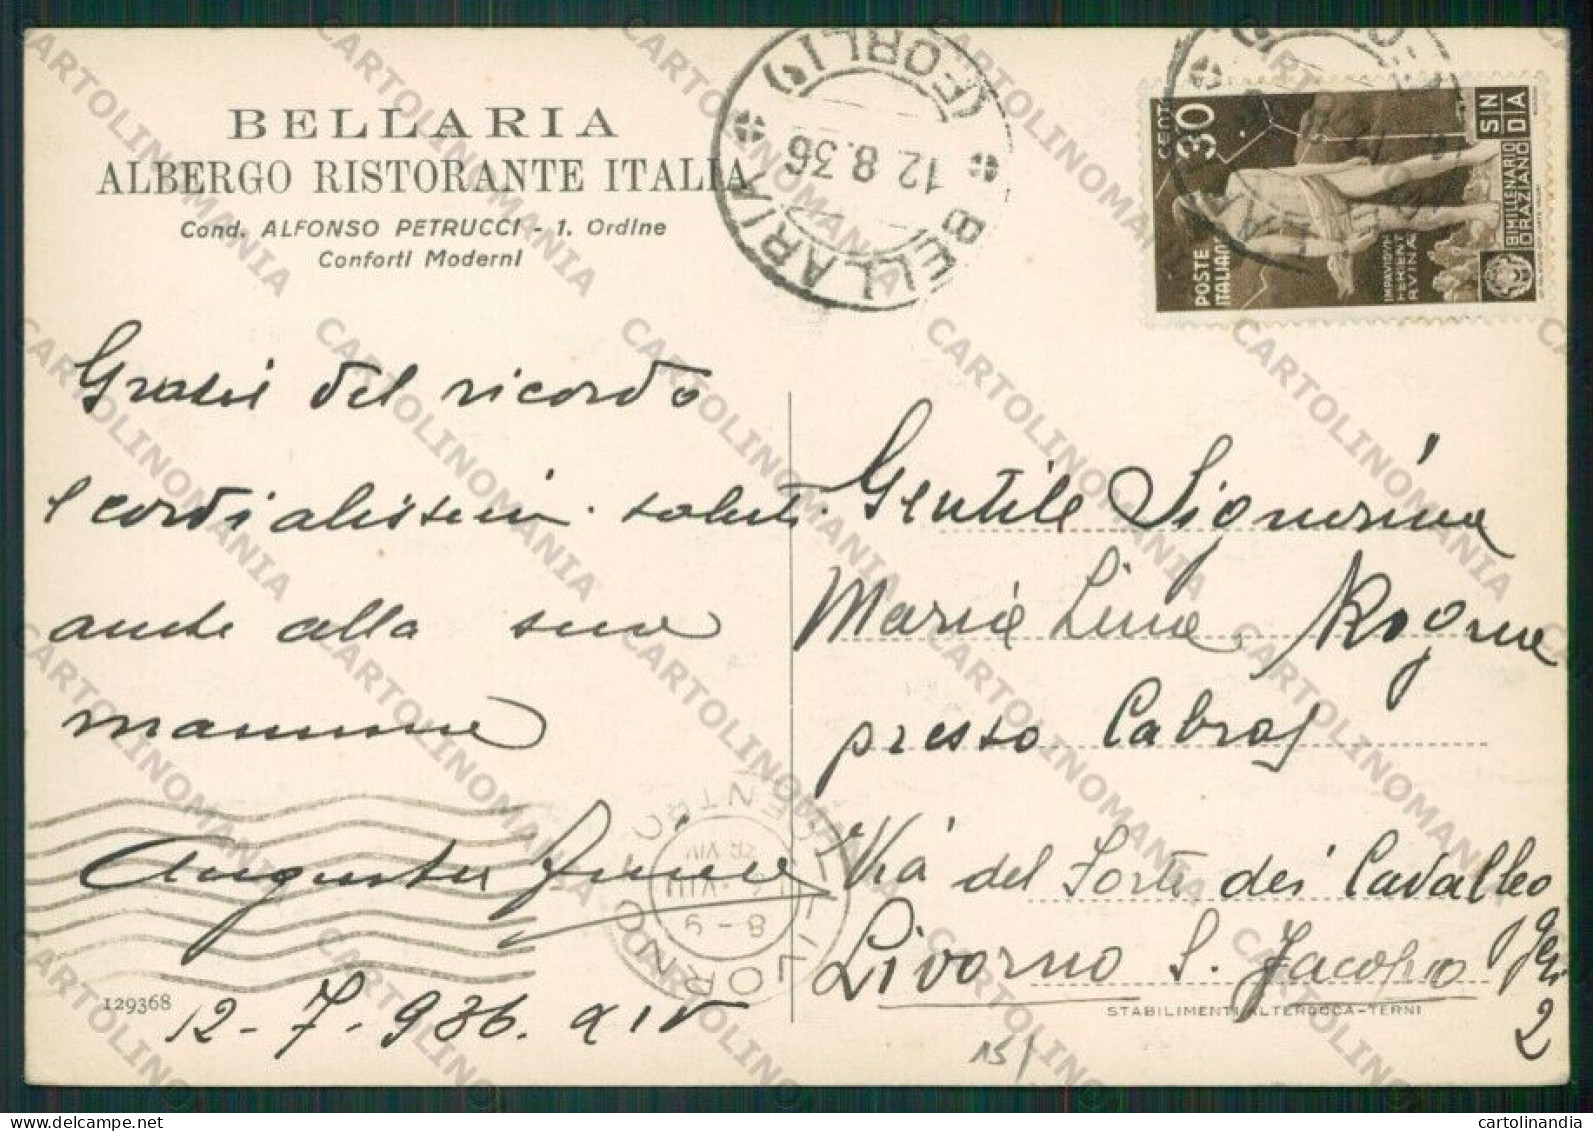 BELLARIA
ALBERGO RISTORANTE ITALIA
Cond. ALFONSO PETRUCCI - 1. Ordine
Conforti Moderni
BELLARIA (FORLI)
12.8.36
CENT. 30
POSTE ITALIANE
IMPAVIDVM FERIENT RVINAE
BIMILLENARIO ORAZIANO
SN DA
Grazie del ricordo
e cordialissimi saluti
anche alla sua
mamma
Augusta
12-7-936. XIV
129368
LIVORNO CENTRO
8-9
Gentile Signorina
Maria Lina
presso Cabras
Via del Forte dei Cavalleggeri
2
Livorno S. Jacopo
STABILIMENTI ALTEROCCA-TERNI
15/
CARTOLINOMANIA
www.delcampe.net
cartolinandia